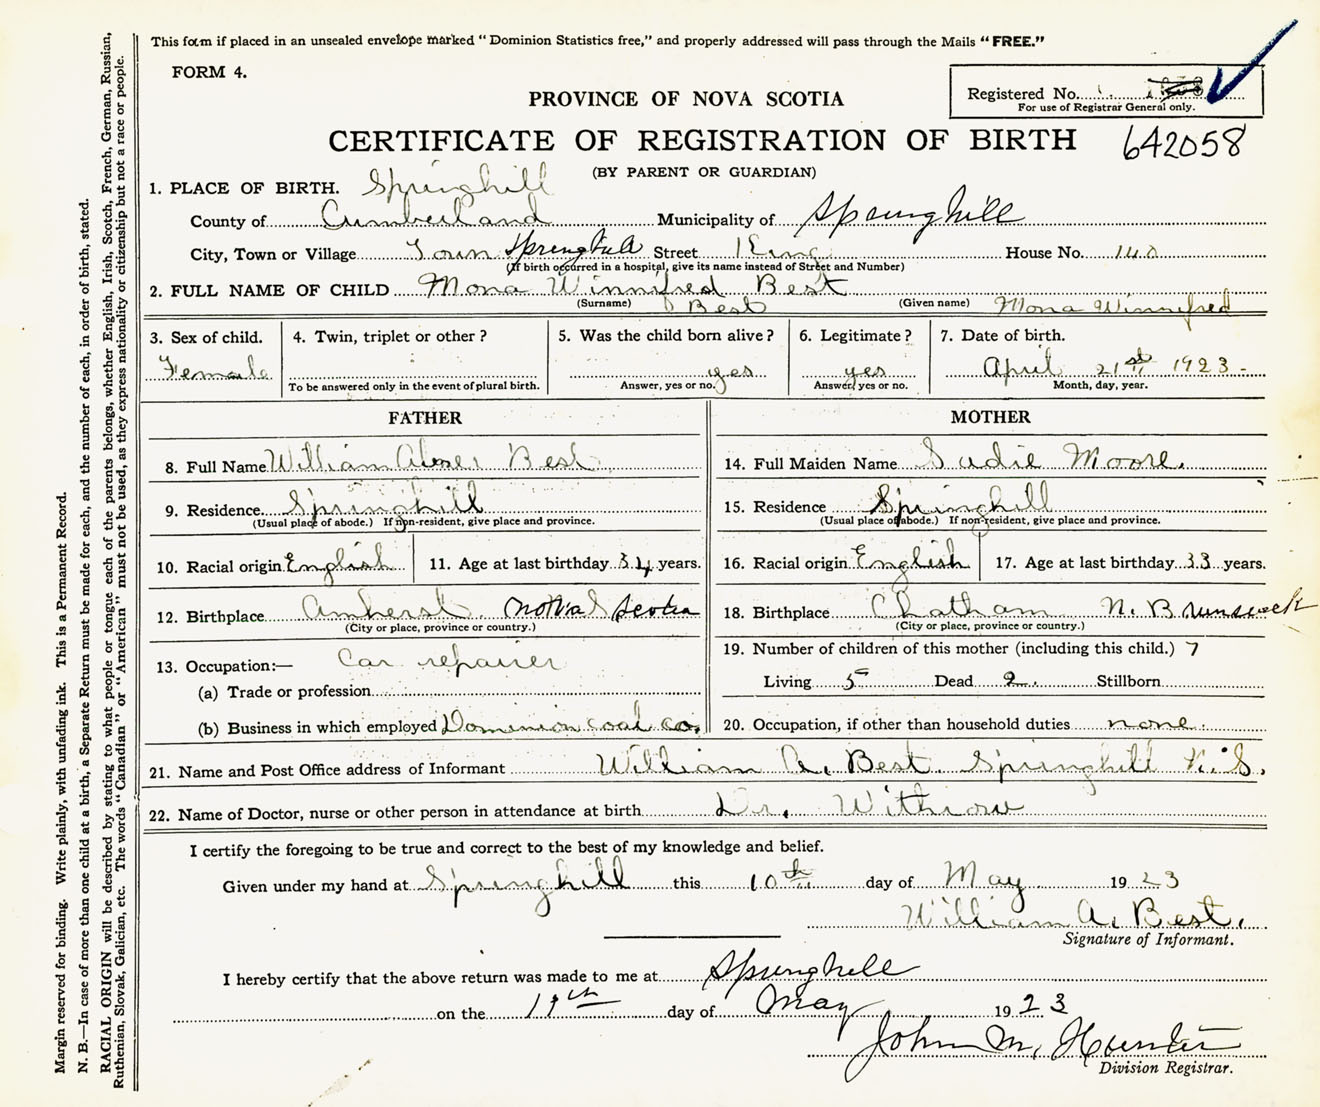 This form if placed in an unsealed envelope marked "Dominion Statistics free," and properly addressed will pass through the Mails "FREE."
FORM 4.
Registered No.
For use of Registrar General only.
PROVINCE OF NOVA SCOTIA
CERTIFICATE OF REGISTRATION OF BIRTH 642058
(BY PARENT OR GUARDIAN)
1. PLACE OF BIRTH. Springhill
County of Cumberland Municipality of Springhill
City, Town or Village Town Springhill Street King House No. 140
(If birth occurred in a hospital, give its name instead of Street and Number)
2. FULL NAME OF CHILD Mona Winnifred Best
(Surname) Best (Given name) Mona Winnifred
3. Sex of child. 4. Twin, triplet or other? 5. Was the child born alive? 6. Legitimate? 7. Date of birth.
Female yes yes April 21st 1923
To be answered only in the event of plural birth. Answer, yes or no. Answer, yes or no. Month, day, year.
FATHER
8. Full Name William Abner Best
9. Residence Springhill
(Usual place of abode.) If non-resident, give place and province.
10. Racial origin English 11. Age at last birthday 34 years.
12. Birthplace Amherst, Nova Scotia
(City or place, province or country.)
13. Occupation:— Car repairer
(a) Trade or profession
(b) Business in which employed Dominion coal co.
MOTHER
14. Full Maiden Name Sadie Moore.
15. Residence Springhill
(Usual place of abode.) If non-resident, give place and province.
16. Racial origin English 17. Age at last birthday 33 years.
18. Birthplace Chatham N. Brunswick
(City or place, province or country.)
19. Number of children of this mother (including this child.) 7
Living 5 Dead 2 Stillborn
20. Occupation, if other than household duties none.
21. Name and Post Office address of Informant William A. Best. Springhill N.S.
22. Name of Doctor, nurse or other person in attendance at birth Dr. Withrow
I certify the foregoing to be true and correct to the best of my knowledge and belief.
Given under my hand at Springhill this 10th day of May 1923
William A. Best.
Signature of Informant.
I hereby certify that the above return was made to me at Springhill
on the day of May 1923
John M. Hunter
Division Registrar.
Margin reserved for binding. Write plainly, with unfading ink. This is a Permanent Record.
N. B.—In case of more than one child at a birth, a Separate Return must be made for each, and the number of each, in order of birth, stated.
RACIAL ORIGIN will be described by stating to what people or tongue each of the parents belongs, whether English, Irish, Scotch, French, German, Russian,
Ruthenian, Slovak, Galician, etc. The words "Canadian" or "American" must not be used, as they express nationality or citizenship but not a race or people.